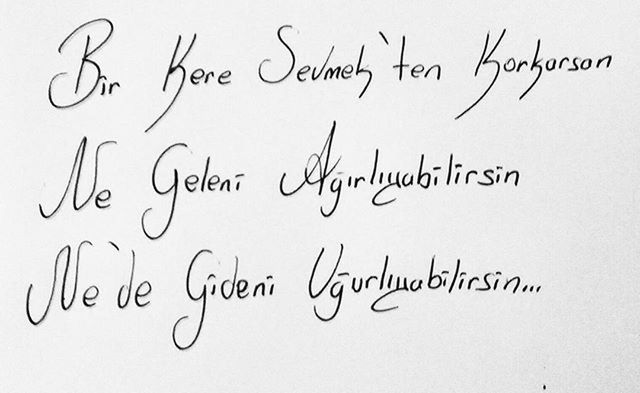 Bir Kere Sevmek'ten Korkarsan
Ne Geleni Ağırlıyabilirsin
Ne'de Gideni Uğurlıyabilirsin...